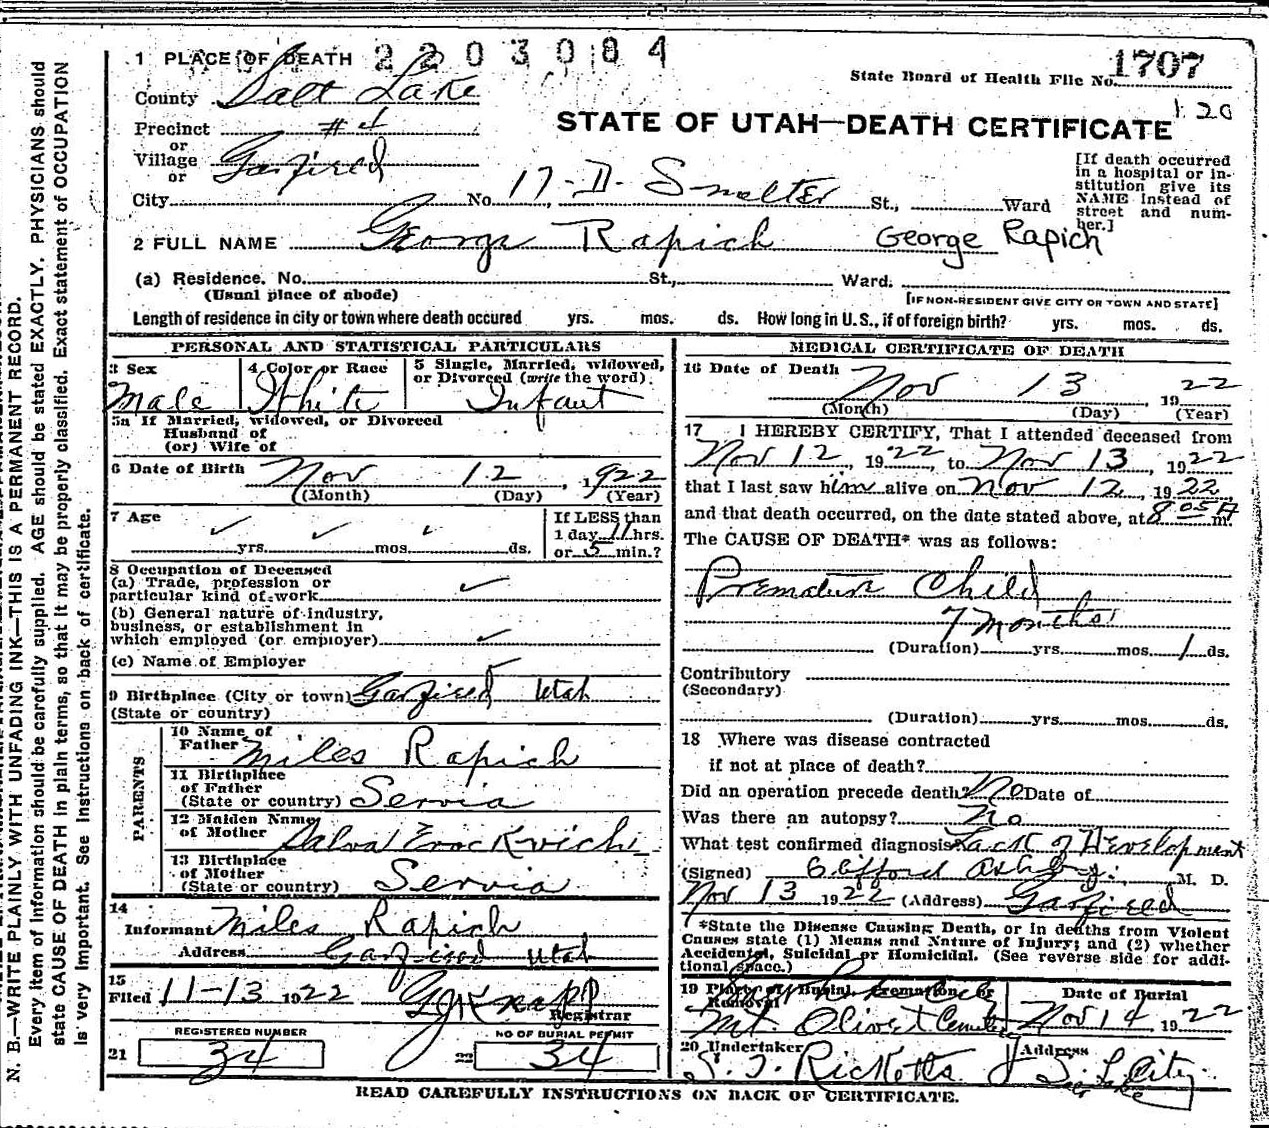 1 PLACE OF DEATH 2203084
State Board of Health File No. 1707
County Salt Lake
1 20
Precinct #4
STATE OF UTAH—DEATH CERTIFICATE
or
Village Garfield
or
City No. 17-D- Smelter St., Ward
[If death occurred in a hospital or institution give its NAME instead of street and number.]
2 FULL NAME George Rapich George Rapich
(a) Residence. No. St., Ward.
(Usual place of abode) [IF NON-RESIDENT GIVE CITY OR TOWN AND STATE]
Length of residence in city or town where death occured yrs. mos. ds. How long in U.S., if of foreign birth? yrs. mos. ds.
PERSONAL AND STATISTICAL PARTICULARS
3 Sex
Male
4 Color or Race
White
5 Single, Married, widowed,
or Divorced (write the word).
Infant
5a If Married, widowed, or Divorced
Husband of
(or) Wife of
6 Date of Birth Nov 12, 1922
(Month) (Day) (Year)
7 Age
yrs. mos. ds.
If LESS than
1 day 11 hrs.
or 5 min.?
8 Occupation of Deceased
(a) Trade, profession or
particular kind of work
(b) General nature of industry,
business, or establishment in
which employed (or employer)
(c) Name of Employer
9 Birthplace (City or town) Garfield Utah
(State or country)
PARENTS
10 Name of
Father Miles Rapich
11 Birthplace
of Father
(State or country) Servia
12 Maiden Name
of Mother
13 Birthplace
of Mother
(State or country) Servia
14
Informant Miles Rapich
Address Garfield Utah
15
Filed 11-13 1922 G J Knapp
Registrar
REGISTERED NUMBER
21 34
NO OF BURIAL PERMIT
22 34
MEDICAL CERTIFICATE OF DEATH
16 Date of Death
Nov 13, 1922
(Month) (Day) (Year)
17 I HEREBY CERTIFY, That I attended deceased from
Nov 12, 1922, to Nov 13, 1922
that I last saw him alive on Nov 12, 1922,
and that death occurred, on the date stated above, at 8 05 A m.
The CAUSE OF DEATH* was as follows:
Premature Child
7 Months
(Duration) yrs. mos. 1 ds.
Contributory
(Secondary)
(Duration) yrs. mos. ds.
18 Where was disease contracted
if not at place of death?
Did an operation precede death? No Date of
Was there an autopsy? No
What test confirmed diagnosis Lack of Development
(Signed) M. D.
Nov 13 1922 (Address) Garfield
*State the Disease Causing Death, or in deaths from Violent
Causes state (1) Means and Nature of Injury; and (2) whether
Accidental, Suicidal or Homicidal. (See reverse side for addi-
tional space.)
19 Place of Burial, Cremation or
Removal
Mt Olivet Cemetery
Date of Burial
Nov 14, 1922
20 Undertaker
S. T. Ricketts
Address
S. L. City
READ CAREFULLY INSTRUCTIONS ON BACK OF CERTIFICATE.
N. B.—WRITE PLAINLY WITH UNFADING INK—THIS IS A PERMANENT RECORD.
Every item of information should be carefully supplied. AGE should be stated EXACTLY. PHYSICIANS should
state CAUSE OF DEATH in plain terms, so that it may be properly classified. Exact statement of OCCUPATION
is very important. See instructions on back of certificate.